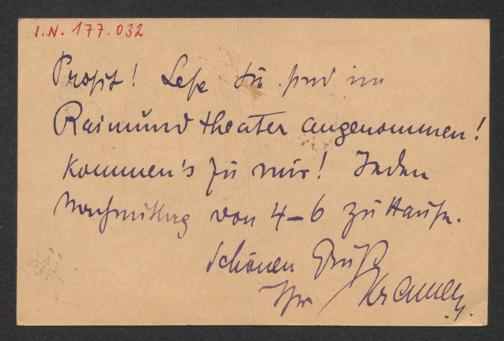 I.N. 177.032
Prosit! Lese Sie sind im
Raimundtheater angenommen!
Kommen's zu mir! Jeden
Nachmittag von 4–6 zu Hause.
Schönen Gruß
Ihr